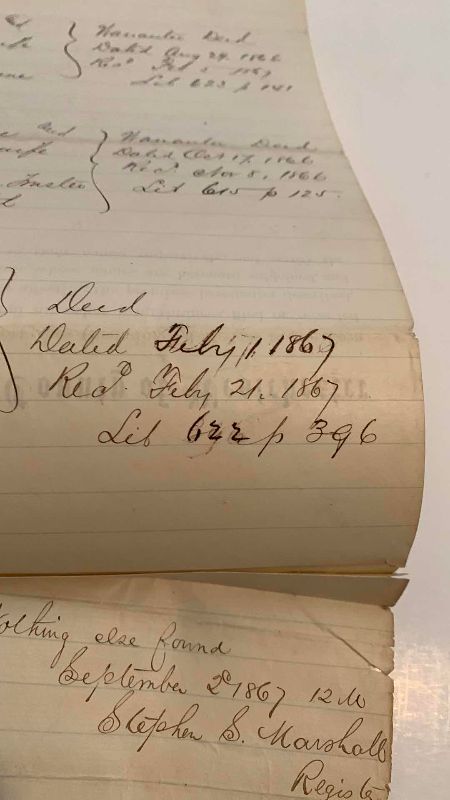 Warrantee Deed
Dated Aug 29. 1866
Rec.d Feb 5 1867
Lib 623 p 141
and
Warrantee Deed
wife
Dated Oct 17, 1866
Rec.d Nov 8, 1866
Trustee
Lib 615 p 125.
Deed
Dated Feby 1. 1867
Rec.d Feby 21. 1867
Lib 622 p 396
Nothing else found
September 2d 1867 12 M
Stephen S. Marshall
Register